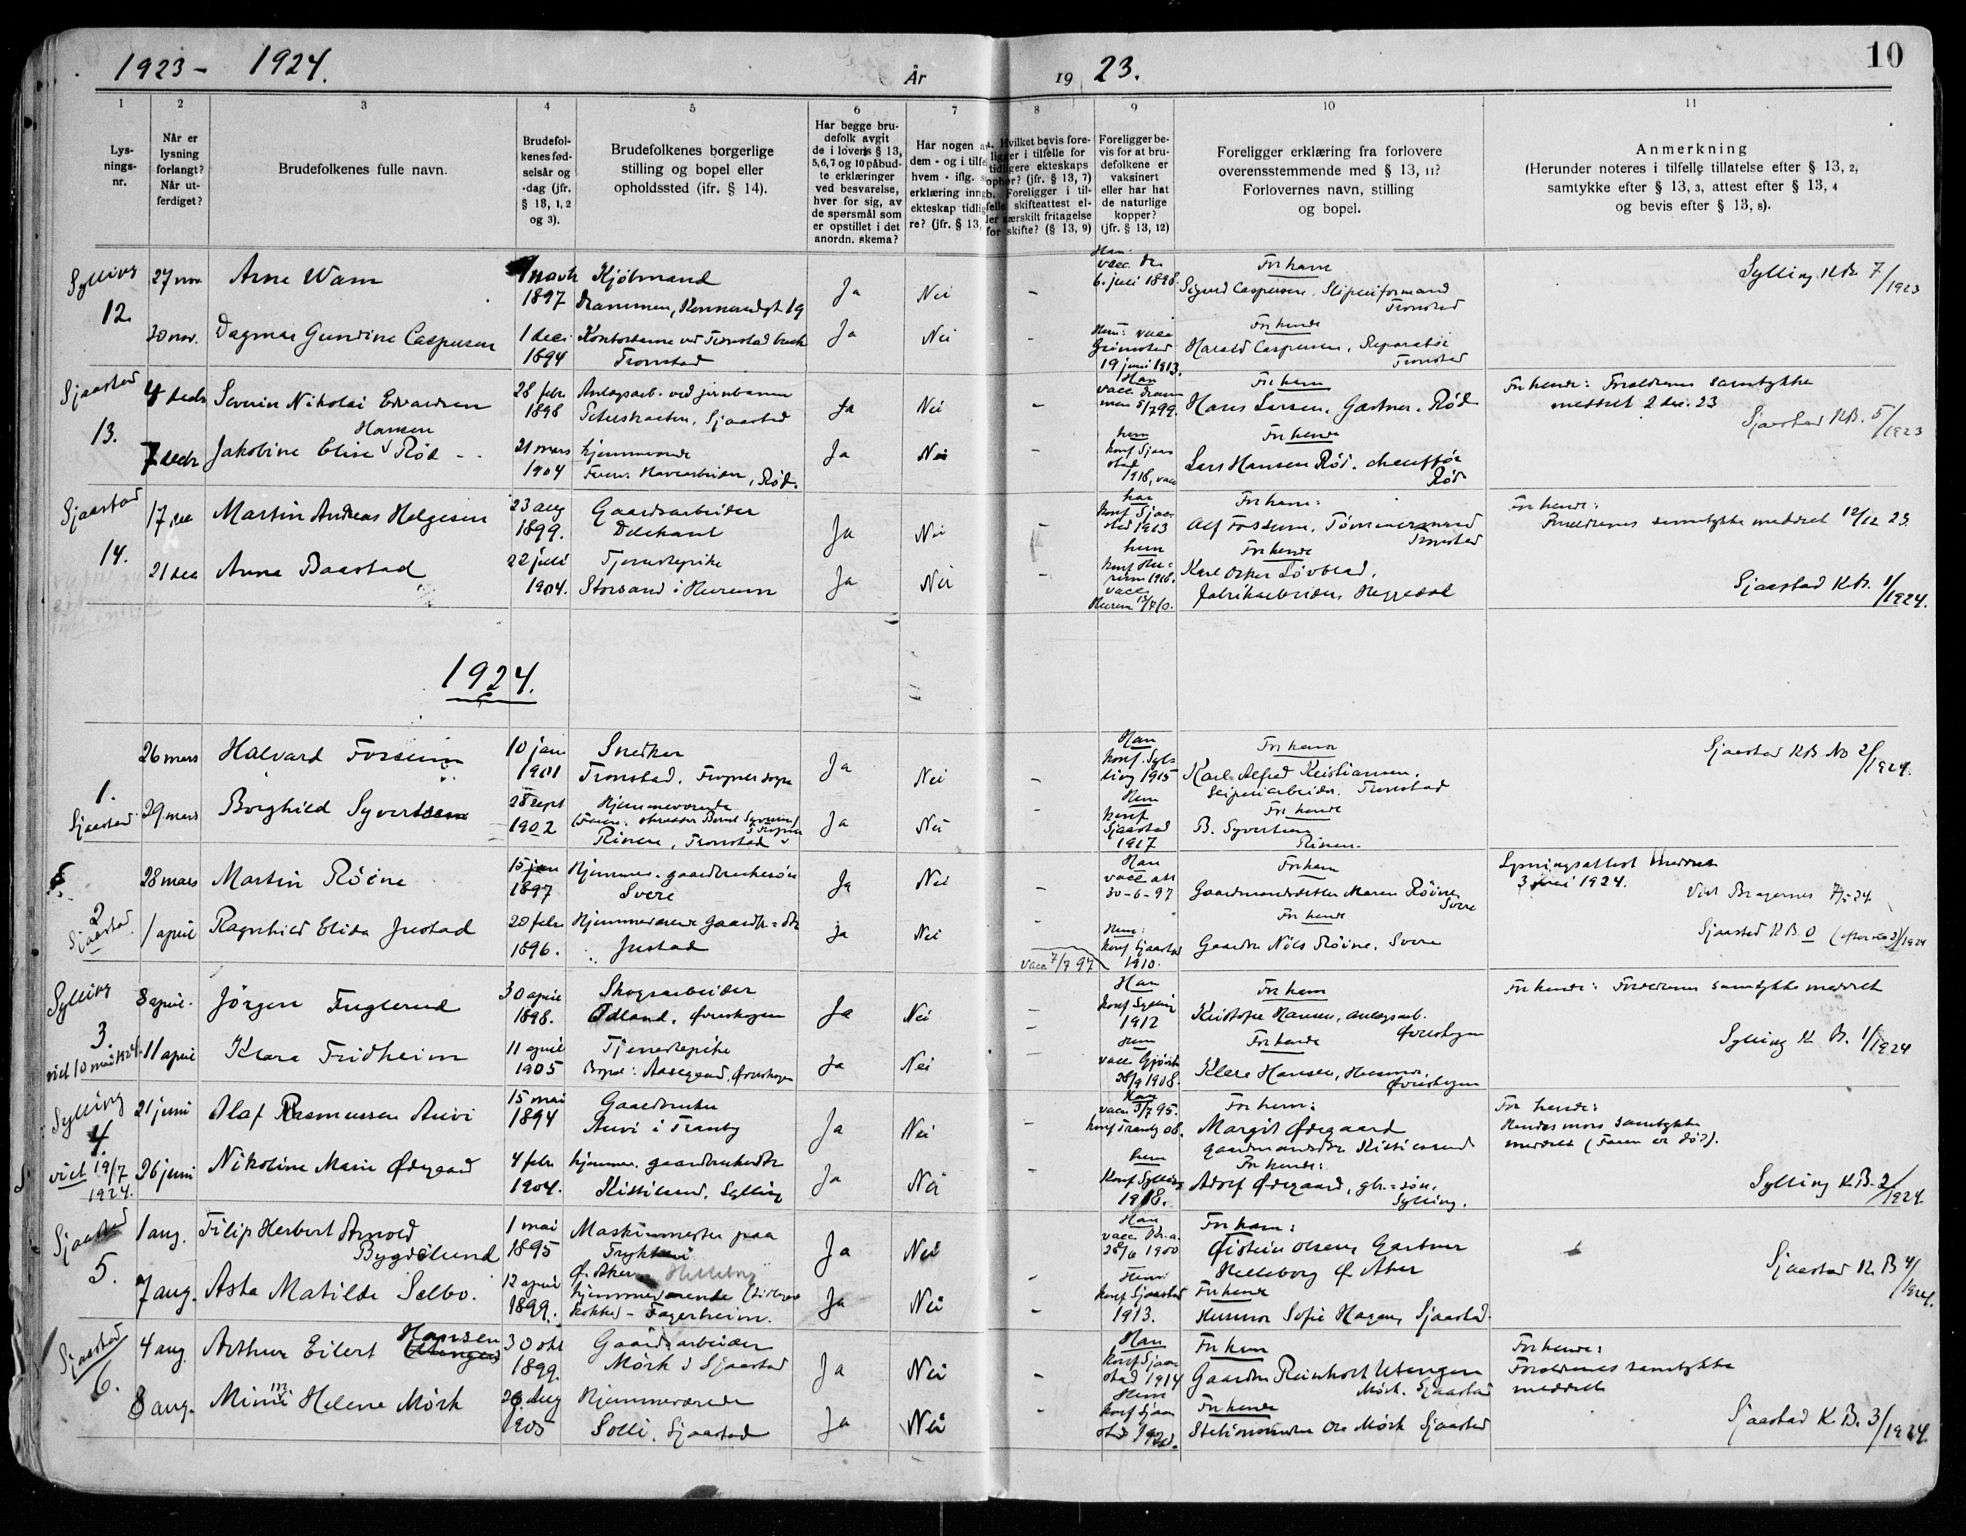 1923 - 1924.
År
19 23.
10
1
2
3
4
5
6
7
8
9
10
11
Lys-
nings-
nr.
Når er
lysning
forlangt?
Når ut-
ferdiget?
Brudefolkenes fulle navn.
Brudefol-
kenes fød-
selsår og
-dag (jfr.
§ 13, 1, 2
og 3).
Brudefolkenes borgerlige
stilling og bopel eller
opholdssted (jfr. § 14).
Har begge bru-
defolk avgit
de i lovens § 13,
5,6,7 og 10 påbud-
te erklæringer
ved besvarelse,
hver for sig, av
de spørsmål som
er opstillet i det
anordn. skema?
Har nogen av
dem - og i tilfe
hvem - iflg. s
erklæring inng
ekteskap tidlig
re? (jfr. § 13,
Hvilket bevis fore-
ligger i tilfelle for
tidligere ekteskaps
ophør? (jfr. § 13, 7)
b. Foreligger i til-
felle skifteattest el-
ler særskilt fritagelse
for skifte? (§ 13, 9)
Foreligger be-
vis for at bru-
defolkene er
vaksinert
eller har hat
de naturlige
kopper?
(jfr. § 13, 12)
Foreligger erklæring fra forlovere
overensstemmende med § 13, 11?
Forlovernes navn, stilling
og bopel.
Anmerkning
(Herunder noteres i tilfelle tillatelse efter § 13, 2,
samtykke efter § 13, 3, attest efter § 13, 4
og bevis efter § 13, 8).
Sylling
12.
27 nov.
Arne Wam
1897
Kjøbmand
Drammen,
Ja
Nei
-
Han
vacc. den
6. juli 1898.
For ham
Sigurd Caspersen, Sliperiformand
Tronstad
Sylling K.B. 7/1923
30 nov.
Dagmar Gundine Caspersen
1 dec.
1894
Kontordame ved Tronstad bruk
Tronstad
Ja
Nei
-
Hun: vacc
Grimstad
19 juni 1913.
For hende
Harald Caspersen, Reparatør
Tronstad
Sjaastad
13.
4 decbr
Severin Nikolai Edvardsen
28 febr
1898
Anlægsarb. ved jernbanen
Sjaastad
Ja
Nei
-
Han
vacc. Dram
men 5/7 99.
For ham
Hans Larsen, Gartner, Rød
For hende: Forældrenes samtykke
meddelt 2 dec. 23
Sjaastad K.B. 5/1923
7 decbr
Jakobine Elise Hansen Rød
21 mars
1904
hjemmevær.
Ja
Nei
-
hun
konf Sjaa
stad
1918, vacc
For hende
Lars Hansen Rød, chauffør
Rød
Sjaastad
14.
17 dec
Martin Andreas Helgesen
23 aug
1899.
Gaardsarbeider
Ja
Nei
-
han
konf Sjaa-
stad 1913
For ham:
Alf Fossum, Tømmermand
Tronstad
For hende:
Forældrenes samtykke meddelt 12/12 23.
21 dec
Anna Baastad
22 juli
1904.
Tjenestepike
Storsand i Hurum
Ja
Nei
-
hun
konf Hu-
rum 1918.
vacc
Hurum
For hende
Karl Oskar Løvblad,
Fabrikarbeider, Heggedal
Sjaastad K.B. 1/1924.
1924.
1.
Sjaastad
26 mars
Halvard Fossum
10 jan
1901
Snedker
Tronstad, Frogner sogn
Ja
Nei
-
Han
konf. Syl-
ling 1915
For ham
Karl Alfred Kristiansen,
Sliperiarbeider, Tronstad
Sjaastad K.B. No 2/1924.
29 mars
Borghild Syvertsen
28 sept
1902
Hjemmeværende
Tronstad
Ja
Nei
-
Hun
konf
Sjaastad
1917
For hende
B. Syvertsen
2
Sjaastad
28 mars
Martin Røine
15 jan
1897
Svere
Ja
Nei
-
Han
vacc. att
30-6-97
For ham
Gaardmandsdatter Maren Røine,
Svere
Lysningsattest meddelt
3 mai 1924.
Viet Bragernes
1 april
Ragnhild Elida Justad
20 febr
1896.
Justad
Ja
Nei
-
vacc 7/7 97
Hun:
konf Sjaastad
1910.
For hende
Gaardbr Nils Røine, Svere
Sjaastad K.B. 0
Sylling
3.
viet 10 mai 1924.
8 april.
Jørgen Fuglerud
30 april
1898.
Skogsarbeider
Ødland, Øverskogen
Ja
Nei
-
Han
konf Sylling
1912
For ham
Kristofer Hansen, anlægsarb.
Øverskogen
For hende: Forældrenes samtykke meddelt
Sylling K.B. 1/1924
11 april
Klara Fridheim
11 april
1905
Tjenestepike
Bopæl: Aasegaard, Øverskogen
Ja
Nei
-
Hun
vacc Gjøvik
28/9 1908.
For hende
Klara Hansen, Husmor,
Øverskogen
Sylling
4.
viet 19/7
1924.
21 juni
Olaf Rasmussen Auvi
15 mai
1894
Gaardbruker
Auvi i Tranby
Ja
Nei
-
Han
vacc 5/7 95.
konf Tranby 08.
For ham:
Margit Ødegaard
gaardmandsdtr Kittilsrud
For hende:
Hendes mors samtykke
meddelt (Faren er død).
26 juni
Nikoline Marie Ødegaard
4 febr
1904.
hjemmev. gaardbrukerdtr
Kittilsrud, Sylling
Ja
Nei
hun
konf Sylling
1918.
For hende:
Adolf Ødegaard, gbr.-søn,
Sylling.
Sylling K.B. 2/1924.
Sjaastad
5.
1 aug.
Filip Herbert Arnold
Bygdølund
1 mai
1895
Maskinmester paa
Ø. Aker Helleborg
Ja
Nei
-
Han
vacc.
28/6 1900
For ham:
Øistein Olsen, Gartner
Helleborg Ø. Aker
Sjaastad K.B. 4/1924.
7 aug.
Asta Matilde Selbo.
12 april
1899.
hjemmeværende
kokke) - Fagerheim.
Ja
Nei
-
Hun
konf Sjaastad
1913.
For hende
Husmor Sofie Hagen, Sjaastad.
Sjaastad
6.
4 aug.
Arthur Eilert Hansen
30 okt
1899.
Gaardsarbeider
Mørk i Sjaastad
Ja
Nei
-
Han
konf Sjaa
stad 1914
For ham
Gaardbr Reinholt Utengen
Mørk. Sjaastad
For hende:
Forældrenes samtykke
meddelt
8 aug.
Mimmi Helene Mørk
1905
Hjemmeværende
Solli, Sjaastad
Ja
Nei
-
Hun
konf Sjaa
For hende
Ole Mørk Sjaastad
Sjaastad K.B. 3/1924.